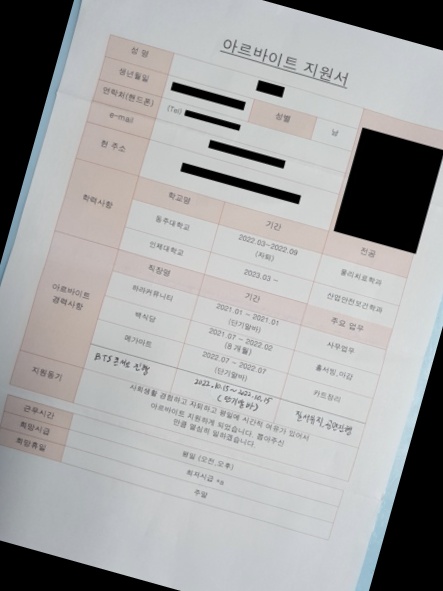 아르바이트 지원서
성 명
생년월일
연락처(핸드폰) (Tel) 성별 남
e-mail
현 주소
학력사항 학교명 기간 전공
동주대학교 2022.03~2022.09 물리치료학과
(자퇴)
인제대학교 2023.03 ~ 산업안전보건학과
아르바이트 경력사항 직장명 기간 주요 업무
카라커뮤니티 2021.01 ~ 2021.01 사무업무
(단기알바)
백식당 2021.07 ~ 2022.02 홀서빙,마감
(8개월)
메가마트 2022.07 ~ 2022.07 카트정리
(단기알바)
BTS 콘서트 진행 2022.10.15~2022.10.15 질서유지, 공연진행
(단기알바)
지원동기 사회생활 경험하고 자퇴하고 평일에 시간적 여유가 있어서
아르바이트 지원하게 되었습니다. 뽑아주신
만큼 열심히 일하겠습니다.
근무시간 평일 (오전,오후)
희망시급 최저시급 +a
희망휴일 주말